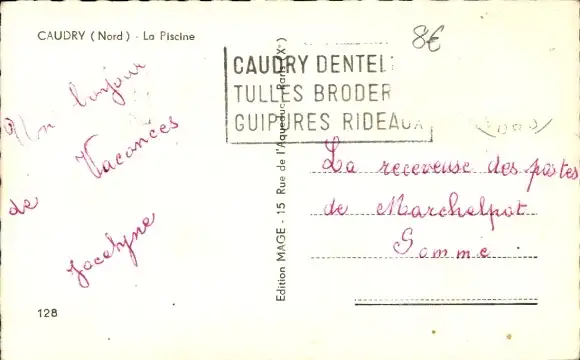 CAUDRY (Nord) - La Piscine
8€
CAUDRY DENTEL
TULLES BRODER
GUIPURES RIDEAUX
Un bonjour
de Vacances
Jocelyne
Edition MAGE - 15 Rue de l'Aqueduc - Paris (Xe)
La receveuse des postes
de Marchelpot
Somme
128